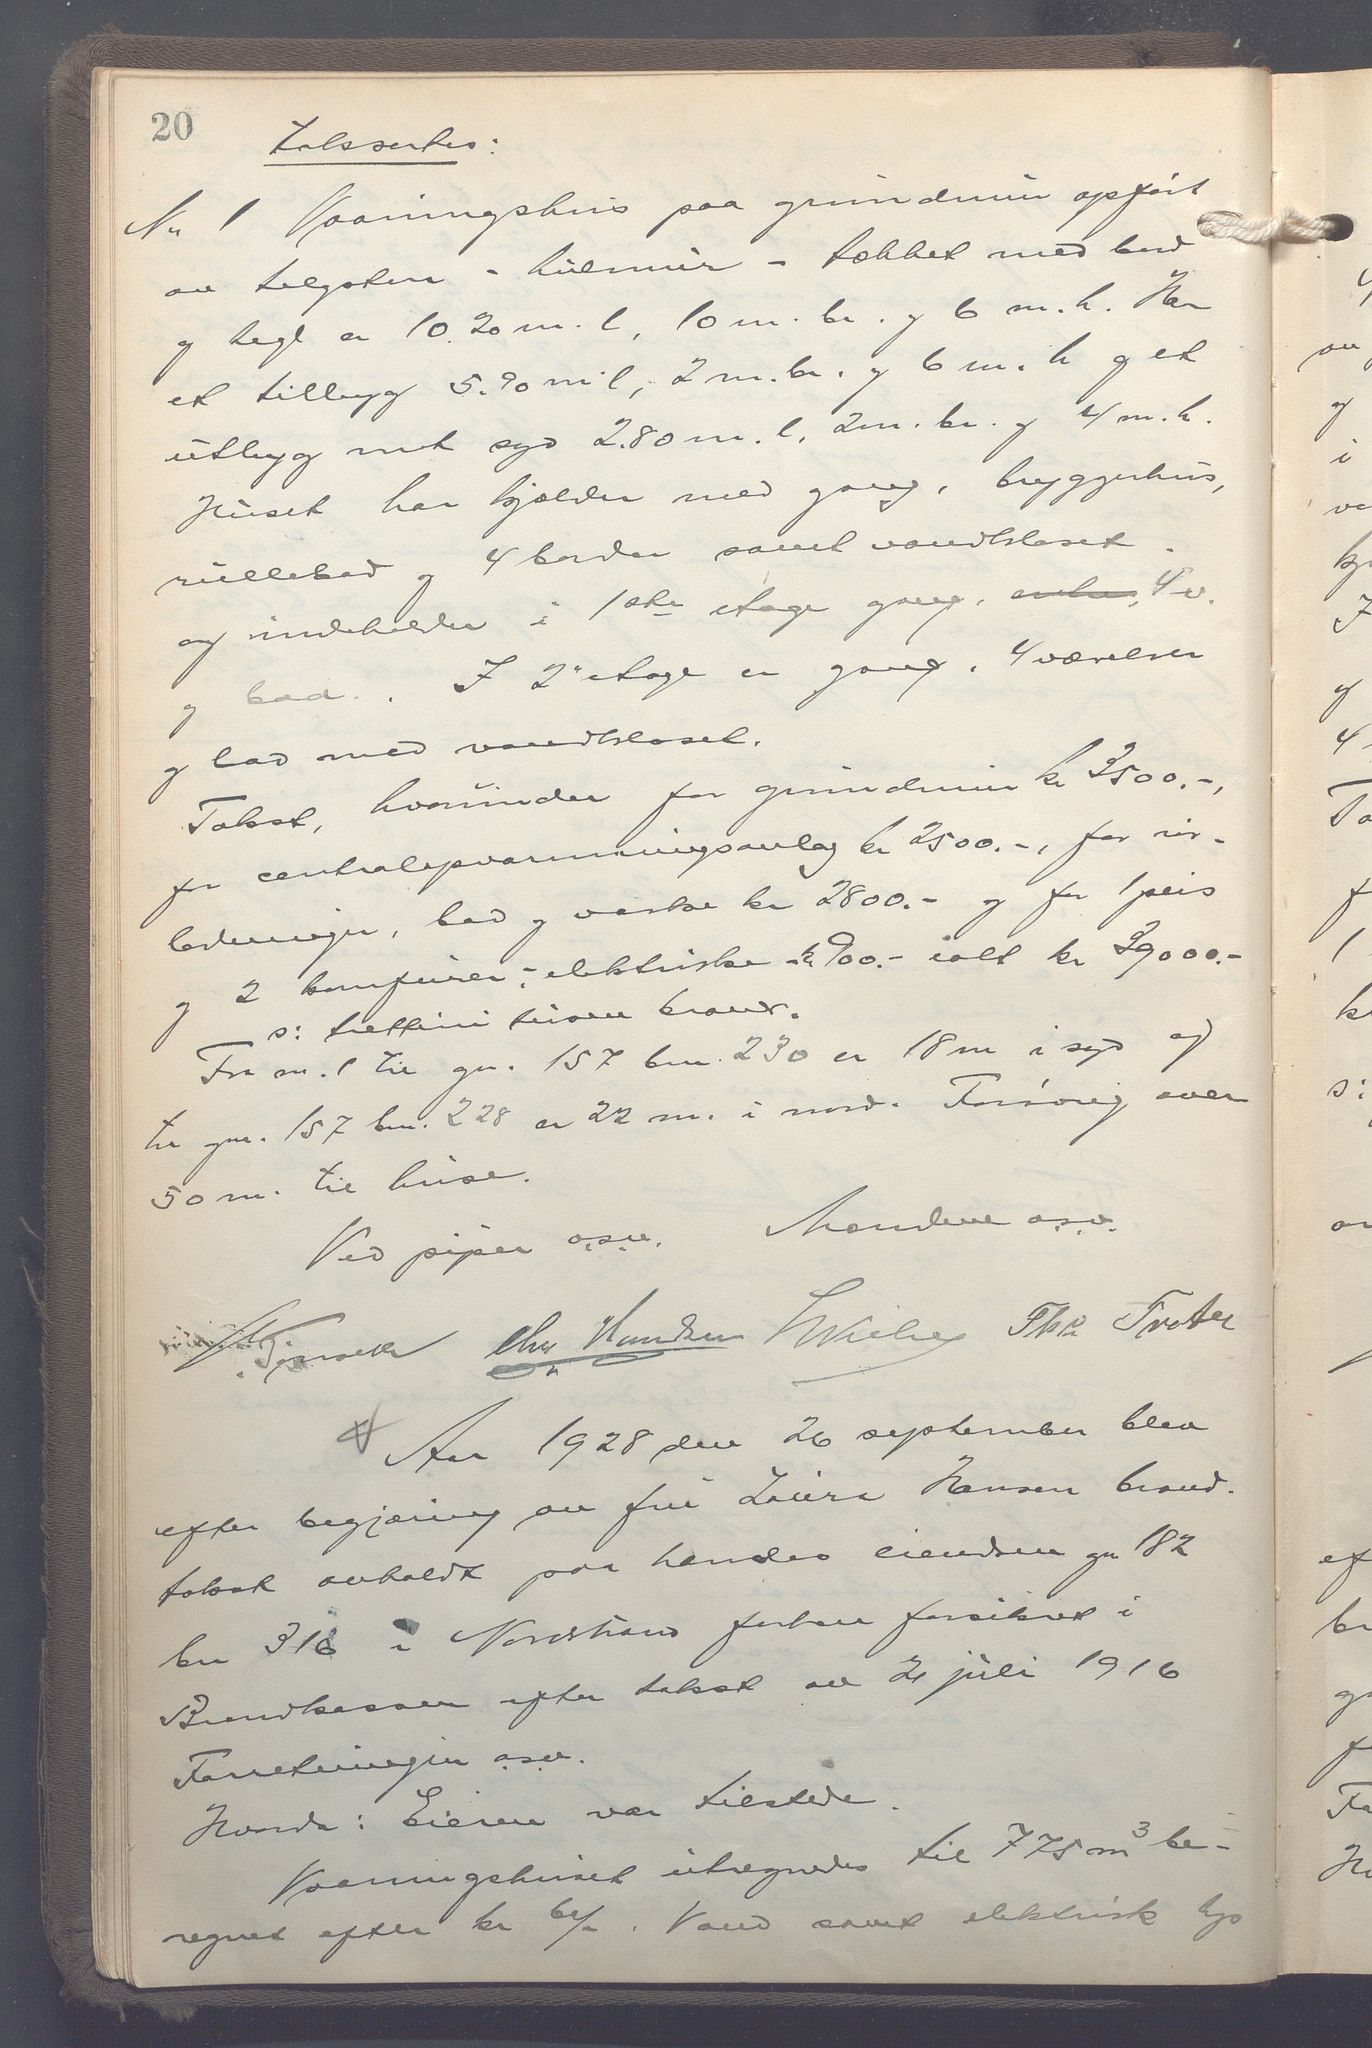 20
Taksertes:
Nr 1 Vaaningshus paa grundmur opført
av teglsten - hulmur - tækket med bord
og tegl er 10.20 m. l, 10 m. br. og 6 m. h. Har
et tilbyg 5.90 m. l, 2 m. br. og 6 m. h og et
utbyg mot syd 2.80 m. l, 2 m. br. og 4 m. h.
Huset har kjælder med gang, bryggerhus,
rullebod og 4 boder samt vandkloset.
og indeholder i 1ste etage gang, 4 v.
og bad. I 2" etage er gang, 4 værelser
og bad med vandkloset.
Takst, hvorunder for grundmur kr 3500.-,
for centralopvarmningsanlæg kr 2500.-, for rør-
ledninger, bad og vaske kr 2800.- og for 1 peis
og 2 komfurer - elektriske - kr 900.- ialt kr 39000.-
s: trettini tusen kroner.
Fra nr. 1 til gn. 157 bn. 230 er 18 m i syd og
til gnr. 157 bn. 228 er 22 m. i nord. Forøvrig over
50 m. til huse.
Ved piper o.s.v. Mændene o.s.v.
Chr Hansen
Aar 1928 den 26 september blev
efter begjæring av fru Laura Hansen brand-
takst avholdt paa hendes eiendom gn 182
bn 316 i Nordstrand forhen forsikret i
Brandkassen efter takst av 21 juli 1916
Forretningen o.s.v.
Hvorda: Eieren var tilstede.
Vaaningshuset utregnedes til 775 m3 be-
regnet efter kr 60/-. Vand samt elektrisk lys